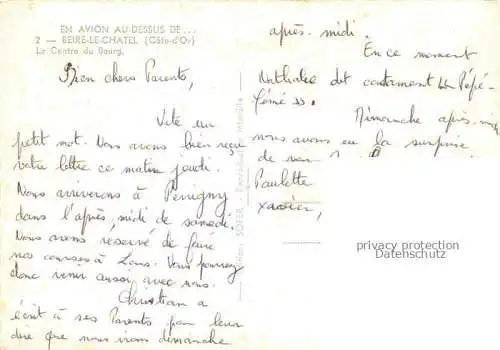 EN AVION AU-DESSUS DE...
2 — BEIRE-LE-CHATEL (Côte-d'Or)
Le Centre du Bourg.
Bien chers Parents,
Vite un
petit mot. Nous avons bien reçu
votre lettre ce matin jeudi.
Nous arriverons à Perrigny
dans l'après-midi de samedi.
Nous avons reservé de faire
nos courses à Lons. Vous pourrez
donc venir aussi avec nous.
Christian a
écrit à ses Parents pour leur
dire que nous irons dimanche
après-midi.
En ce moment
Nathalie dit constament "Pépé-
Mémé".
Dimanche après-midi
nous avons eu la surprise
de
Paulette
Xavier,
SOFER
privacy protection
Datenschutz